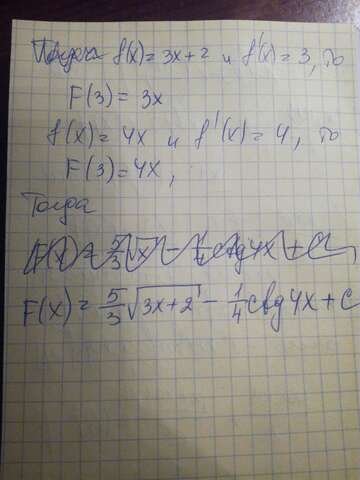 f(x) = 3x + 2 и f'(x) = 3, то
F(3) = 3x
f(x) = 4x и f'(x) = 4, то
F(3) = 4x,
Тогда
F(x) = 5/3 √(3x+2) - 1/4 ctg 4x + C